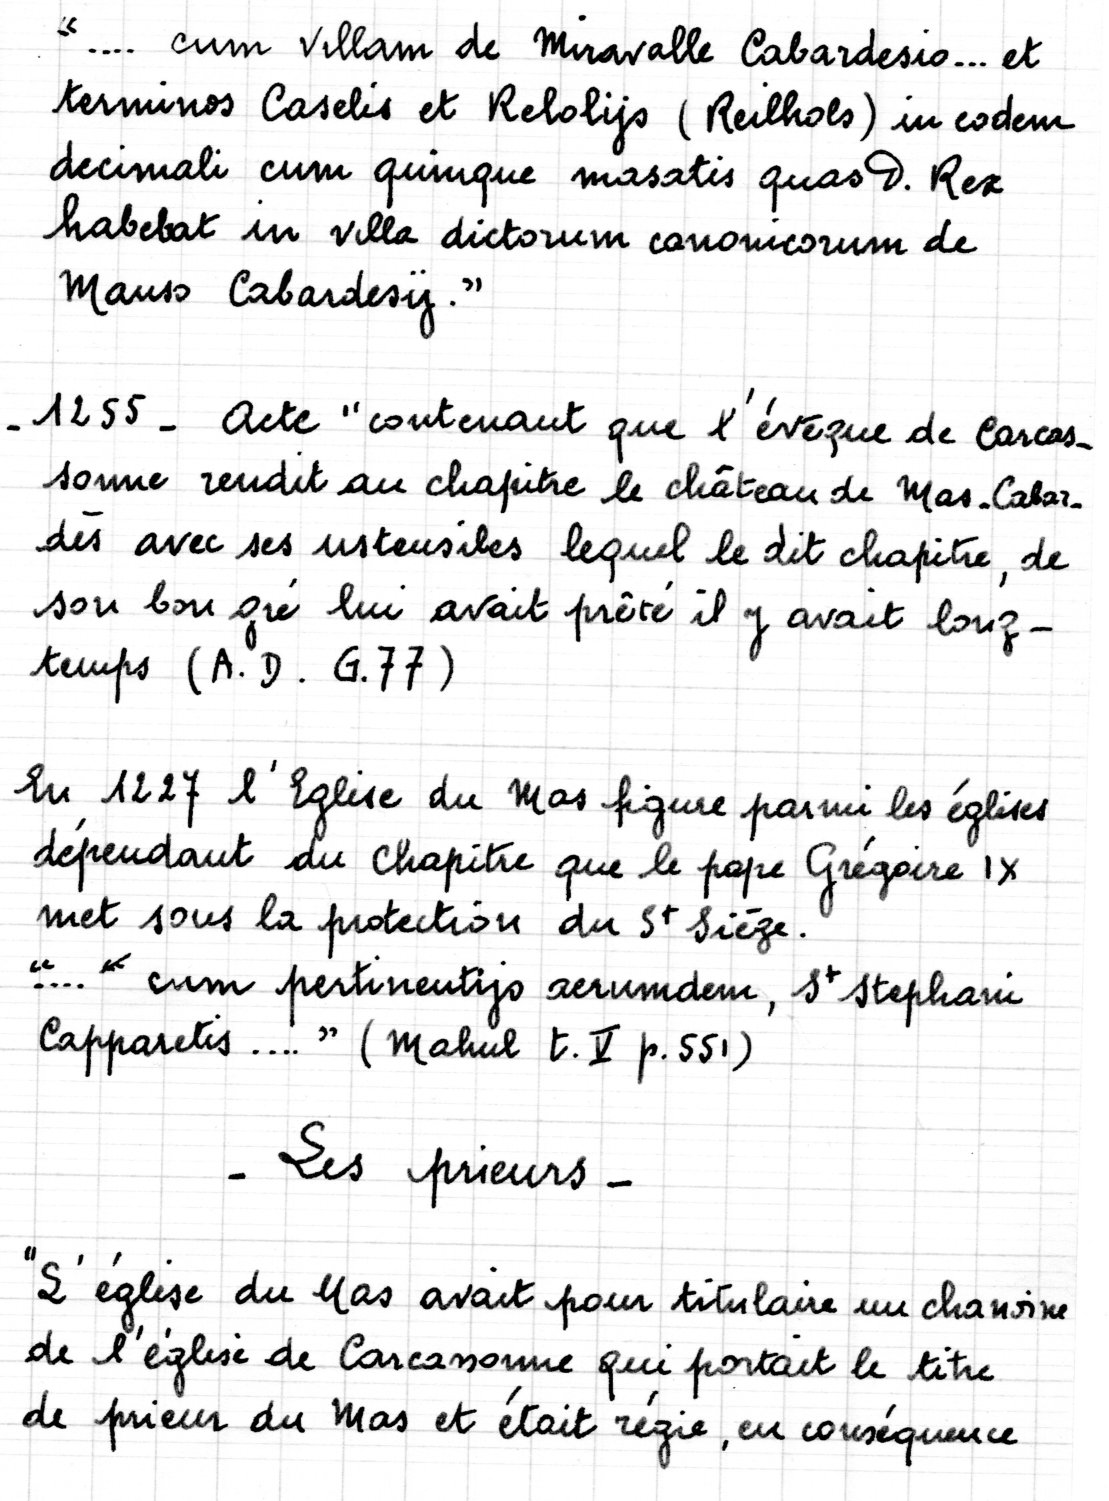 ".... cum villam de Miravalle Cabardesio... et
terminos Caselis et Relolijs (Reilhols) in eodem
decimali cum quinque masatis quas D. Rex
habebat in villa dictorum canonicorum de
Manso Cabardesij."
- 1255 - Acte "contenant que l'évêque de Carcas-
sonne rendit au chapitre le château de Mas-Cabar-
dès avec ses ustensiles lequel le dit chapitre, de
son bon gré lui avait prêté il y avait long-
temps (A.D. G.77)
En 1227 l'Eglise du Mas figure parmi les églises
dépendant du Chapitre que le pape Grégoire IX
met sous la protection du St Siège.
"...." cum pertinentijs aerumdem, St Stephani
Capparetis ...." (Mahul t. V p. 551)
- Les prieurs -
"L'église du Mas avait pour titulaire un chanoine
de l'église de Carcassonne qui portait le titre
de prieur du Mas et était régie, en conséquence